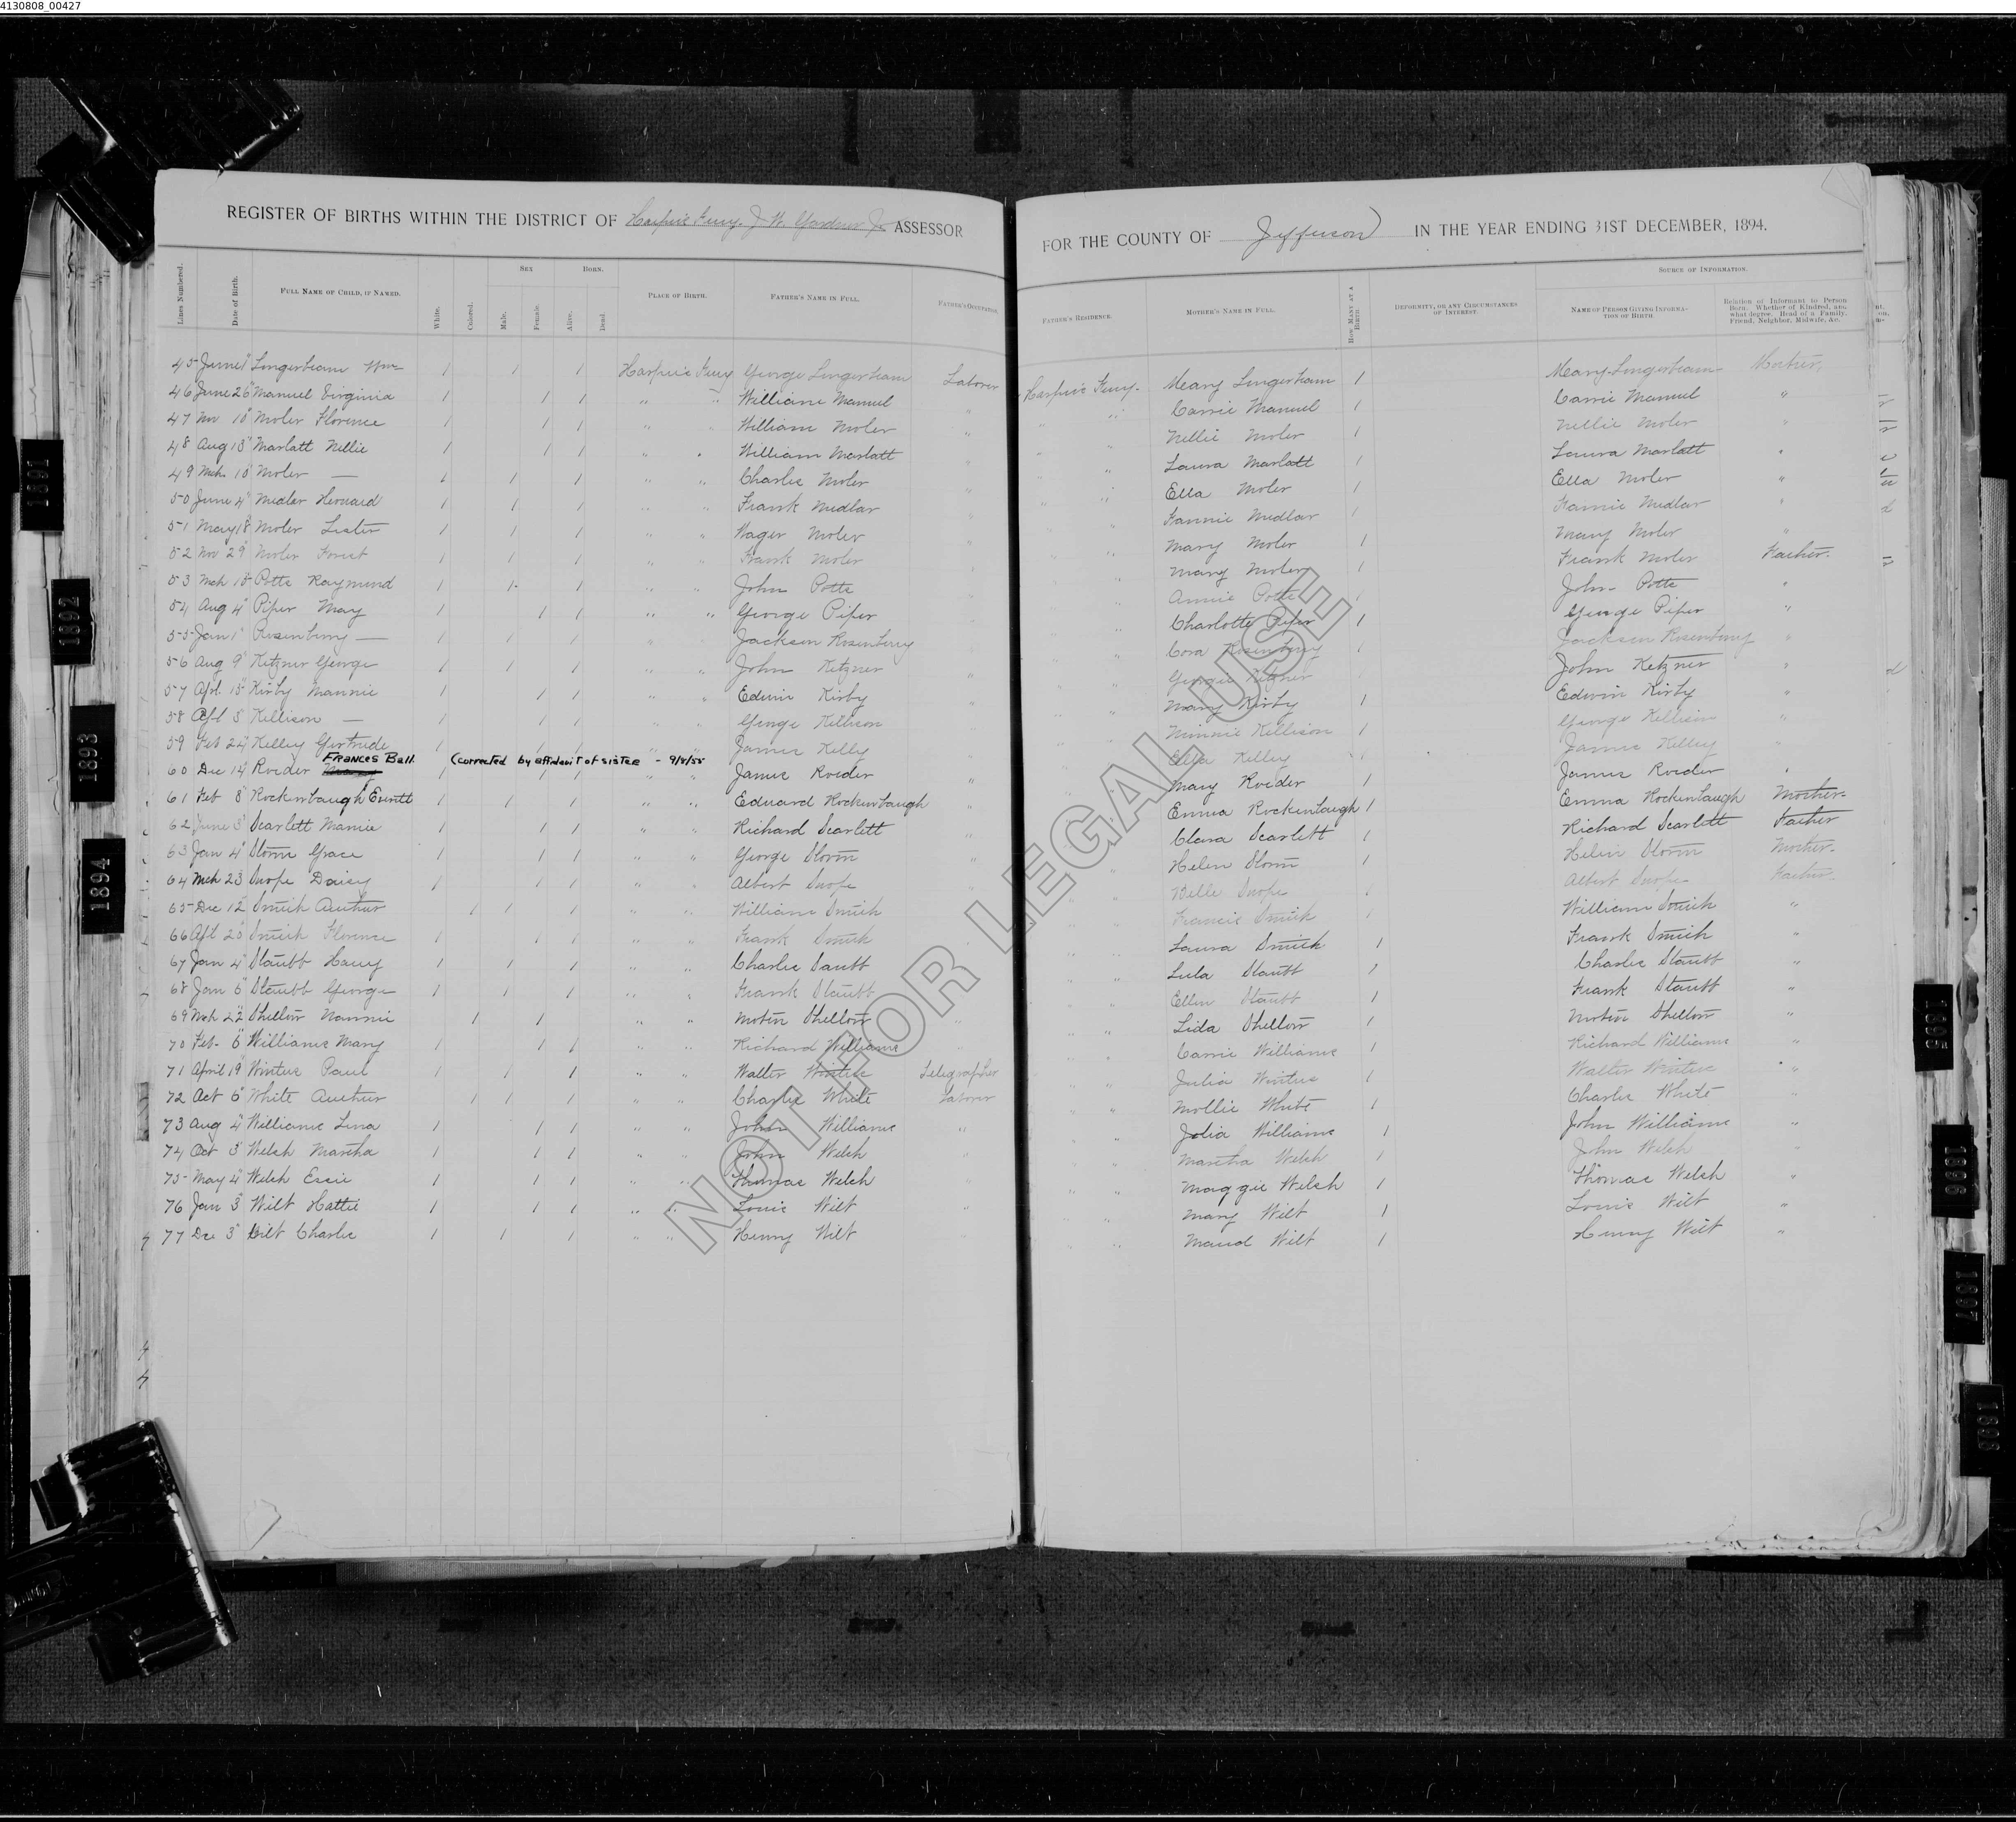 4130808_00427
REGISTER OF BIRTHS WITHIN THE DISTRICT OF Harper's Ferry. J. W. Gardner Jr ASSESSOR FOR THE COUNTY OF Jefferson IN THE YEAR ENDING 31ST DECEMBER, 1894.
SEX BORN. SOURCE OF INFORMATION.
Lines Numbered. Date of Birth. FULL NAME OF CHILD, IF NAMED. White. Colored. Male. Female. Alive. Dead. PLACE OF BIRTH. FATHER'S NAME IN FULL. FATHER'S OCCUPATION. FATHER'S RESIDENCE. MOTHER'S NAME IN FULL. HOW MANY AT A BIRTH DEFORMITY, OR ANY CIRCUMSTANCES OF INTEREST. NAME OF PERSON GIVING INFORMATION OF BIRTH Relation of Informant to Person Born. Whether of Kindred, and what degree. Head of a Family, Friend, Neighbor, Midwife, &c.
45 June 1" Lingerbeam Wm 1 1 1 Harper's Ferry George Lingerbeam Laborer Harper's Ferry. Mary Lingerbeam 1 Mary Lingerbeam Mother.
46 June 26" Manuel Virginia 1 1 1 " " William Manuel " " Carrie Manuel 1 Carrie Manuel "
47 Nov 10" Moler Florence 1 1 1 " " William Moler " " Nellie Moler 1 Nellie Moler "
48 Aug 13" Marlatt Nellie 1 1 1 " " William Marlatt " " Laura Marlatt 1 Laura Marlatt "
49 Mch 10" Moler — 1 1 1 " " Charles Moler " " Ella Moler 1 Ella Moler "
50 June 4" Medlar Howard 1 1 1 " " Frank Medlar " " Fannie Medlar 1 Fannie Medlar "
51 May 18" Moler Lester 1 1 1 " " Wager Moler " " Mary Moler 1 Mary Moler "
52 Nov 29" Moler Forest 1 1 1 " " Frank Moler " " Mary Moler 1 Frank Moler Father.
53 Mch 15" Potts Raymund 1 1 1 " " John Potts " Annie Potts 1 John Potts "
54 Aug 4" Piper May 1 1 1 " " George Piper " Charlotte Piper 1 George Piper "
55 Jan 1" Rosenbury — 1 1 1 " Jackson Rosenbury " Cora Rosenbury 1 Jackson Rosenbury "
56 Aug 9" Ketzner George 1 1 1 " " John Ketzner " " Georgie Ketzner 1 John Ketzner "
57 Apl. 15" Kirby Mannie 1 1 1 " " Edwin Kirby " " Mary Kirby 1 Edwin Kirby "
58 Apl 5" Kellison — 1 1 1 " " George Kellison " " Minnie Kellison 1 George Kellison "
59 Feb 24" Kelley Gertrude 1 1 1 " " James Kelly " Ella Kelley 1 James Kelley "
FRANCES Ball (corrected by affidavit of sister - 9/8/55
60 Dec 14" Roeder 1 1 1 " " James Roeder " Mary Roeder 1 James Roeder "
61 Feb 8" Rockenbaugh Evritt 1 1 1 " " Edward Rockenbaugh " Emma Rockenbaugh 1 Emma Rockenbaugh Mother.
62 June 3" Scarlett Mamie 1 1 1 " " Richard Scarlett " Clara Scarlett 1 Richard Scarlett Father
63 Jan 4" Storm Grace 1 1 1 " " George Storm " Helen Storm 1 Helen Storm Mother.
64 Mch 23 Swope Daisy 1 1 1 " " Albert Swope " Belle Swope 1 Albert Swope Father.
65 Dec 12" Smith Authur 1 1 1 " " William Smith " Francis Smith 1 William Smith "
66 Apl 20" Smith Florence 1 1 1 " " Frank Smith " Laura Smith 1 Frank Smith "
67 Jan 4" Staubb Harry 1 1 1 " " Charles Saubb " Lula Staubb 1 Charles Staubb "
68 Jan 6" Staubb George 1 1 1 " " Frank Staubb " Ellen Staubb 1 Frank Staubb "
69 Mch 22" Shelton Nannie 1 1 " " Motin Shelton " Lida Shelton 1 Motin Shelton "
70 Feb. 6" Williams Mary 1 1 1 " " Richard Williams " Carrie Williams 1 Richard Williams "
71 April 19" Winters Paul 1 1 1 " " Walter Winters Telegrapher " Julia Winters 1 Walter Winters "
72 Oct 6" White Authur 1 1 1 " " Charles White Laborer " Mollie White 1 Charles White "
73 Aug 4" Williams Lina 1 1 1 " " John Williams " " Julia Williams 1 John Williams "
74 Oct 3" Welsh Martha 1 1 1 " " John Welsh " " Martha Welsh 1 John Welsh "
75 May 4" Welsh Essie 1 1 1 " " Thomas Welsh " " Maggie Welsh 1 Thomas Welsh "
76 Jan 3" Wilt Hattie 1 1 1 " " Louis Wilt " " Mary Wilt 1 Louis Wilt "
77 Dec 3" Wilt Charles 1 1 1 " " Henry Wilt " " Maud Wilt 1 Henry Wilt "
NOT FOR LEGAL USE
1891
1892
1893
1894
1895
1896
1897
1898